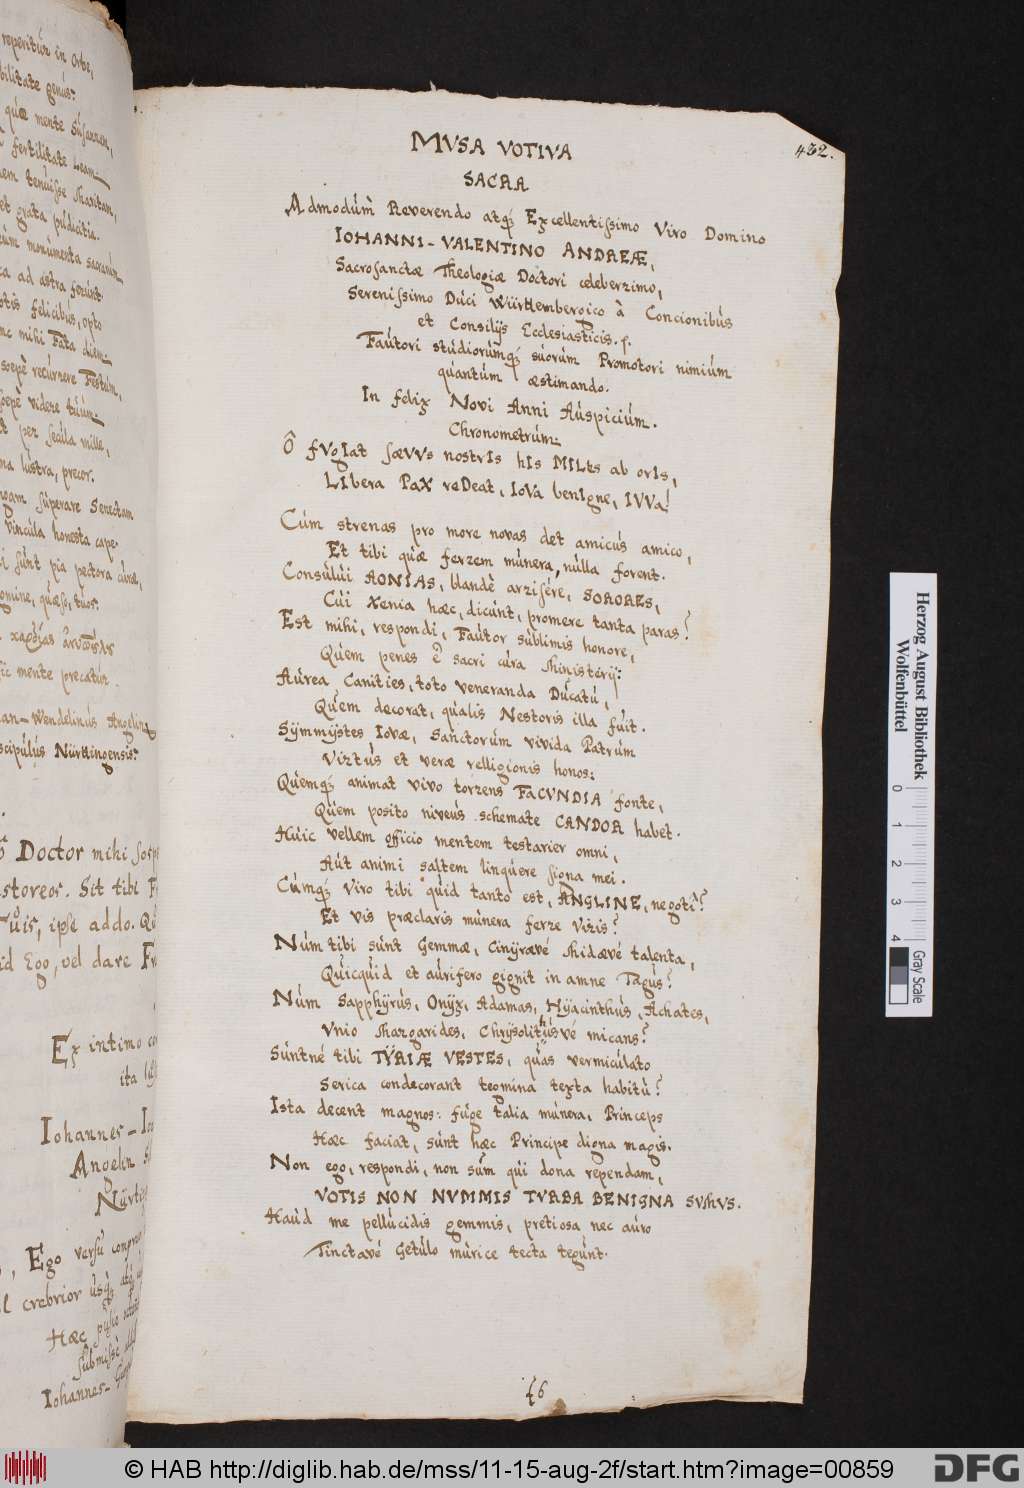 reperitur in Orbe,
bilitate genus:
quæ mente Susannam,
fertilitate Leam
tenuisse Maritam,
et grata pudicitia.
monumenta sacrorum
ad astra ferunt
felicibus, opto
mihi Fata diem
soepè recurrere Festum,
soepè videre tuum
per secula mille,
lustra, precor.
superare Senectam
vincula honesta cape.
sunt pia pectora curæ,
quæso, tuos:
mente precatur
Wendelinus Angelin
Nürttingensis:
Doctor mihi
Sit tibi
ipse addo.
Ego, vel dare
Ex intimo
ita
Iohannes-
Angelin
Ego versu
crebrior usq;
Hæc
submissè
Iohannes-
432.
MVSA VOTIVA
SACRA
Admodùm Reverendo atq; Excellentissimo Viro Domino
IOHANNI-VALENTINO ANDREÆ,
Sacrosanctæ Theologiæ Doctori celeberrimo,
Serenissimo Duci Württembergico à Concionibus
et Consilijs Ecclesiasticis. p.
Fautori studiorumq; suorum Promotori nimium
quantum æstimando.
In felix Novi Anni Auspicium.
Chronometrum:
Ô fVgIat sæVVs nostrIs hIs MILes ab orIs,
LIbera PaX reDeat, IoVa benIgne, IVVa!
Cùm strenas pro more novas det amicus amico,
Et tibi quæ ferrem munera, nulla forent.
Consului AONIAS, blandè arrisére, SORORES,
Cui Xenia hæc, dicunt, promere tanta paras?
Est mihi, respondi, Fautor sublimis honore,
Quem penes ē sacri cura Ministerij:
Aurea Canities, toto veneranda Ducatu,
Quem decorat, qualis Nestoris illa fuit.
Symmystes Iovæ, sanctorum vivida Patrum
Virtus et veræ relligionis honos:
Quemq; animat vivo torrens FACVNDIA fonte,
Quem posito niveus schemate CANDOR habet.
Huic vellem officio mentem testarier omni,
Aut animi saltem linquere signa mei.
Cumq; Viro tibi quid tanto est, ANGLINE, negoti?
Et vis præclaris munera ferre Viris?
Num tibi sunt Gemmæ, Cinyrævé Midævé talenta,
Quicquid et aurifero gignit in amne Tagus?
Num Sapphyrus, Onyx, Adamas, Hyacinthus, Achates,
Vnio Margarides, Chrysolithusvé micans?
Suntné tibi TYRIÆ VESTES, quas vermiculato
Serica condecorant tegmina texta habitu?
Ista decent magnos: fuge talia munera, Princeps
Hæc faciat, sunt hæc Principe digna magis.
Non ego, respondi, non sum qui dona rependam,
VOTIS NON NVMMIS TVRBA BENIGNA SVMVS.
Haud me pellucidis gemmis, pretiosa nec auro
Tinctavé Getulo murice tecta tegunt.
Herzog August Bibliothek
Wolfenbüttel
0 1 2 3 4
Gray Scale
© HAB http://diglib.hab.de/mss/11-15-aug-2f/start.htm?image=00859
DFG